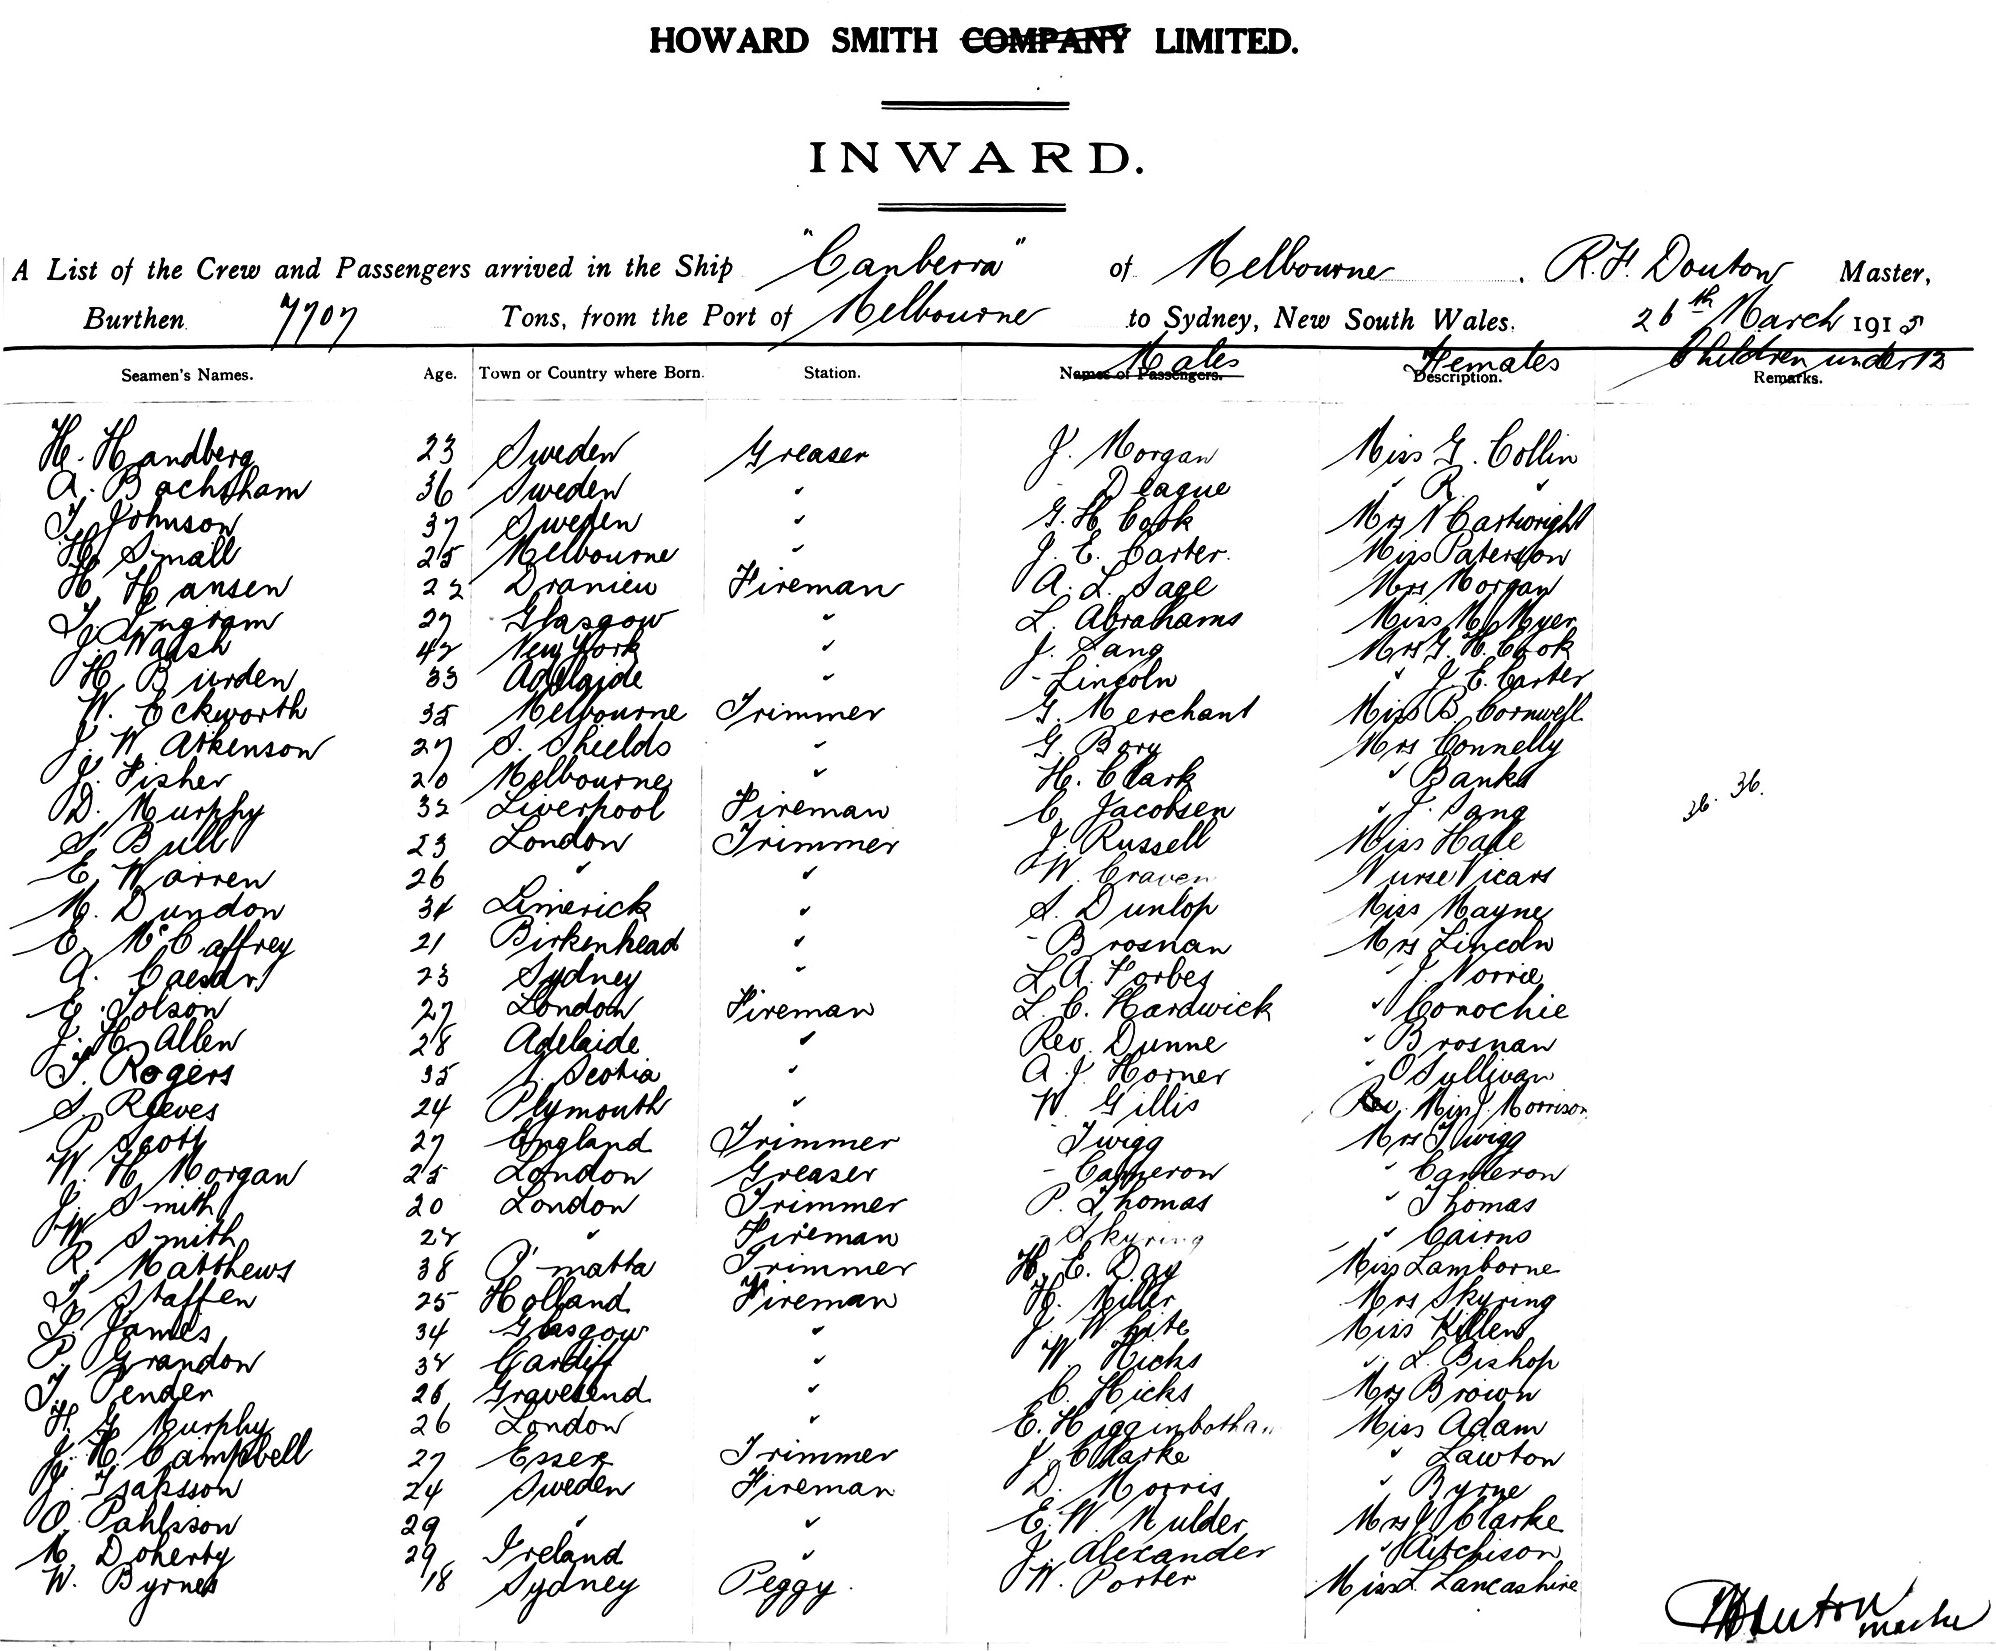 HOWARD SMITH COMPANY LIMITED.
INWARD.
A List of the Crew and Passengers arrived in the Ship "Canberra" of Melbourne. R. H. Douton Master,
Burthen 7707 Tons, from the Port of Melbourne to Sydney, New South Wales. 26th March 1915
Males Females Children under 12
Seamen's Names. Age. Town or Country where Born. Station. Names of Passengers. Description. Remarks.
H. Handberg 23 Sweden Greaser J. Morgan Miss G. Collin
A. Bachtham 36 Sweden " - Deague " R. "
T. Johnson 37 Sweden " G. H. Cook Mrs N Cartwright
H. Small 25 Melbourne " J. E. Carter. Miss Paterson
H. Hansen 22 Fireman A. L. Sage Mrs Morgan
T. Ingram 27 Glasgow " L. Abrahams Miss M. Myer
J. Walsh 42 New York " J. Sang Mrs G. H. Cook
H. Burden 33 Adelaide " - Lincoln " J. E. Carter
W. Eckworth 35 Melbourne Trimmer G. Merchant Miss B. Cornwell
J. W. Atkenson 27 S. Shields " G. Bory Mrs Connelly
J. Fisher 20 Melbourne " H. Clark " Banks
D. Murphy 32 Liverpool Fireman C. Jacobsen " J. Sang 36. 36.
S. Bull 23 London Trimmer J. Russell Miss Hale
E. Warren 26 " " W. Craven Nurse Vicars
M. Dundon 34 Limerick " S. Dunlop Miss Mayne
E. McCaffrey 21 Birkenhead " - Brosnan Mrs Lincoln
A. Caesar 23 Sydney " L. A. Forbes " J. Norrie
E. Tolson 27 London Fireman L. C. Hardwick " Conochie
J. H. Allen 28 Adelaide " Rev. Dunne " Brosnan
T. Rogers 35 N. Scotia " A. J. Horner " O'Sullivan
S. Reeves 24 Plymouth " W. Gillis Rev. Miss J. Morrison
P. Scott 27 England Trimmer - Twigg Mrs Twigg
W. H. Morgan 25 London Greaser - Cameron " Cameron
J. Smith 20 London Trimmer P. Thomas " Thomas
W. Smith 22 " Fireman - Skyring " Cairns
R. Matthews 38 P'matta Trimmer H. E. Day Miss Lamborne
T. Staffen 25 Holland Fireman H. Miller Mrs Skyring
F. James 34 Glasgow " J. White Miss Killen
P. Grandon 32 Cardiff " W. Hicks " L. Bishop
T. Pender 26 Gravesend " C. Hicks Mrs Brown
H. G. Murphy 26 London " E. Higginbotham Miss Adam
J. H. Campbell 27 Essex Trimmer J. Clarke " Lawton
J. Isaksson 24 Sweden Fireman D. Morris " Byrne
O. Pahlsson 29 " " E. W. Mulder Mrs J Clarke
M. Doherty 29 Ireland " J. Alexander " Aitchison
W. Byrnes 18 Sydney Peggy. W. Porter Miss L. Lancashire
RHDouton